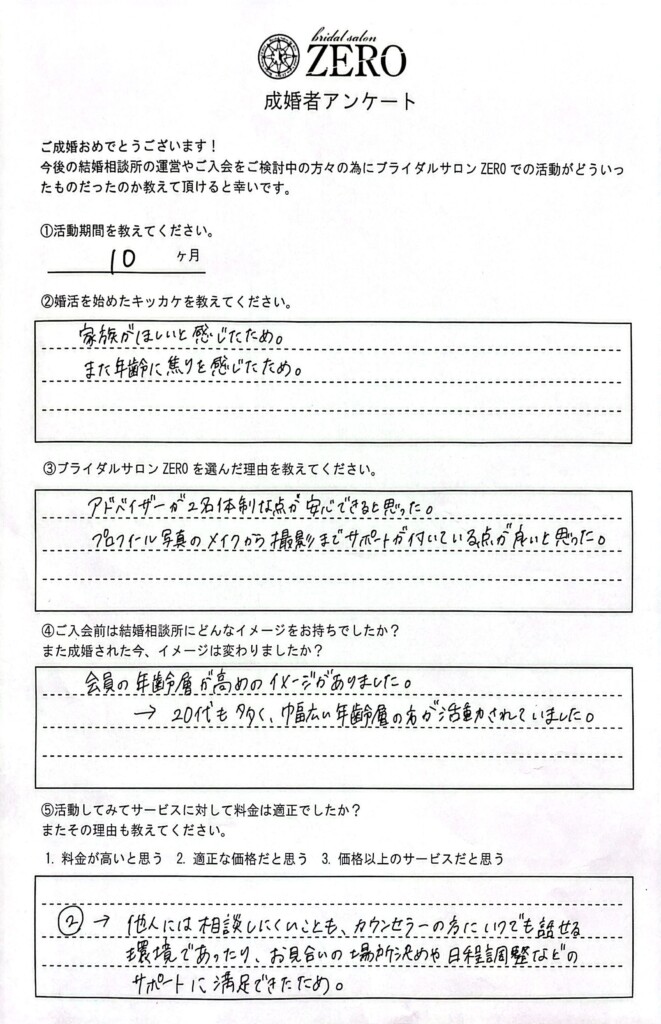 bridal salon
ZERO
成婚者アンケート
ご成婚おめでとうございます！
今後の結婚相談所の運営やご入会をご検討中の方々の為にブライダルサロンZEROでの活動がどういっ
たものだったのか教えて頂けると幸いです。
①活動期間を教えてください。
10 ヶ月
②婚活を始めたキッカケを教えてください。
家族がほしいと感じたため。
また年齢に焦りを感じたため。
③ブライダルサロンZEROを選んだ理由を教えてください。
アドバイザーが2名体制な点が安心できると思った。
プロフィール写真のメイクから撮影までサポートが付いている点が良いと思った。
④ご入会前は結婚相談所にどんなイメージをお持ちでしたか？
また成婚された今、イメージは変わりましたか？
会員の年齢層が高めのイメージがありました。
→ 20代も多く、幅広い年齢層の方が活動されていました。
⑤活動してみてサービスに対して料金は適正でしたか？
またその理由も教えてください。
1. 料金が高いと思う 2. 適正な価格だと思う 3. 価格以上のサービスだと思う
② → 他人には相談しにくいことも、カウンセラーの方にいつでも話せる
環境であったり、お見合いの場所決めや日程調整などの
サポートに満足できたため。